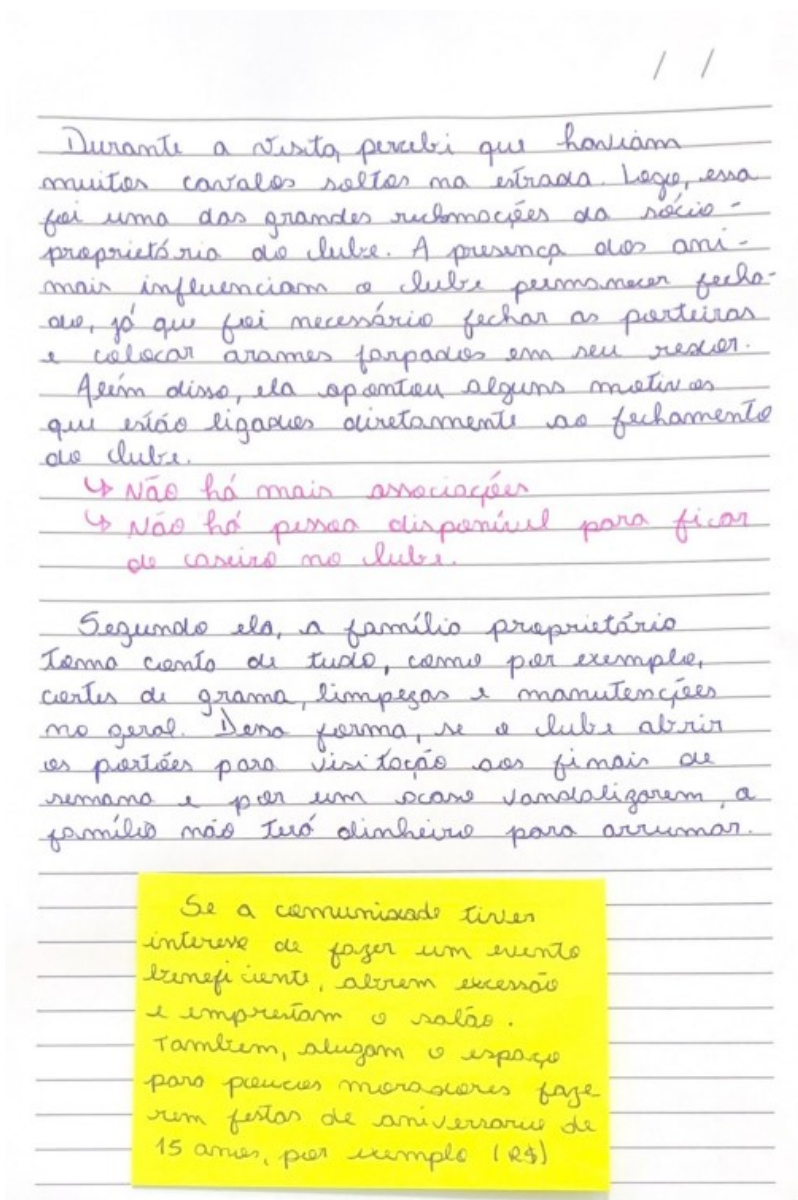 / /
Durante a visita, percebi que haviam
muitos cavalos soltos na estrada. Logo, essa
foi uma das grandes reclamações da sócio-
proprietária do clube. A presença dos ani-
mais influenciam o clube permanecer fecha-
do, já que foi necessário fechar as porteiras
e colocar arames farpados em seu redor.
Além disso, ela apontou alguns motivos
que estão ligados diretamente ao fechamento
do clube.
↳ Não há mais associações
↳ Não há pessoa disponível para ficar
de caseiro no clube.
Segundo ela, a família proprietária
toma conta de tudo, como por exemplo,
cortes de grama, limpezas e manutenções
no geral. Dessa forma, se o clube abrir
os portões para visitação aos finais de
semana e por um acaso vandalizarem, a
família não terá dinheiro para arrumar.
Se a comunidade tiver
interesse de fazer um evento
beneficiente, abrem excessão
e emprestam o salão.
Tambem, alugam o espaço
para poucos moradores faze-
rem festas de aniversario de
15 anos, por exemplo (R$)